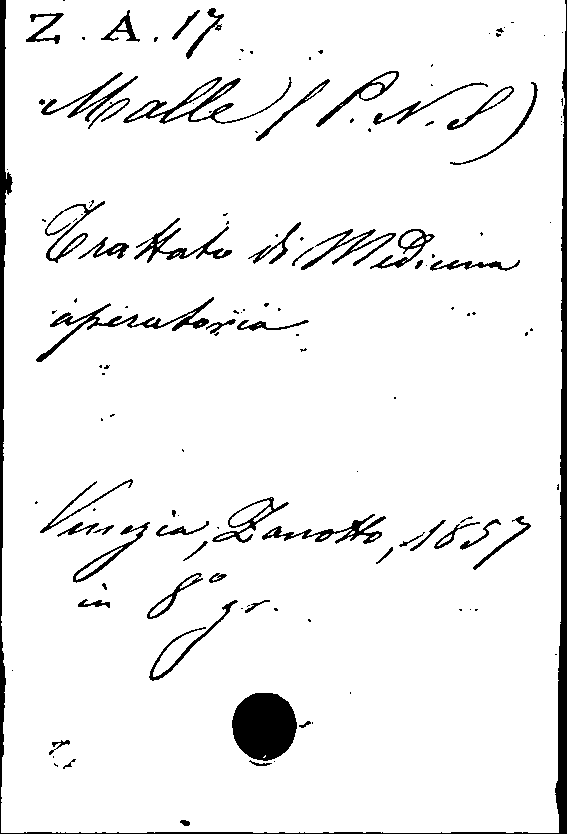 Z. A. 17
Malle (P. N. S)
Trattato di Medicina
operatoria
Venezia, Zanotto, 1857
in 8° gr.